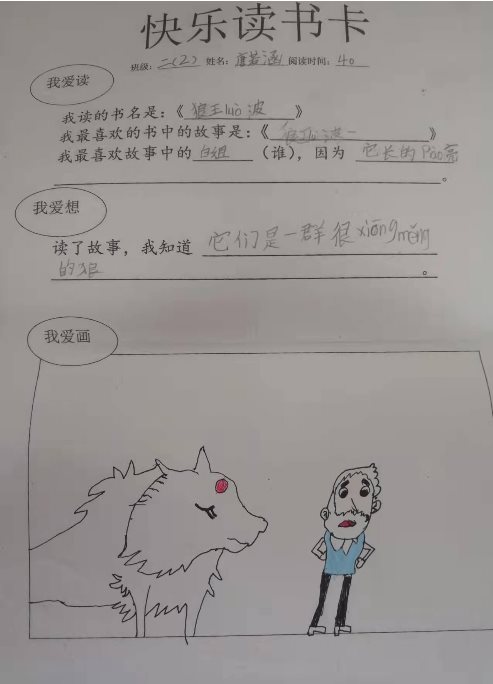 快乐读书卡
班级：二（2） 姓名：唐若涵 阅读时间：40
我爱读
我读的书名是：《狼王luò波》
我最喜欢的书中的故事是：《狼王 波一》
我最喜欢故事中的白姐（谁），因为 它长的Piào亮
。
我爱想
读了故事，我知道 它们是一群很xiōngměng
的狼。
我爱画